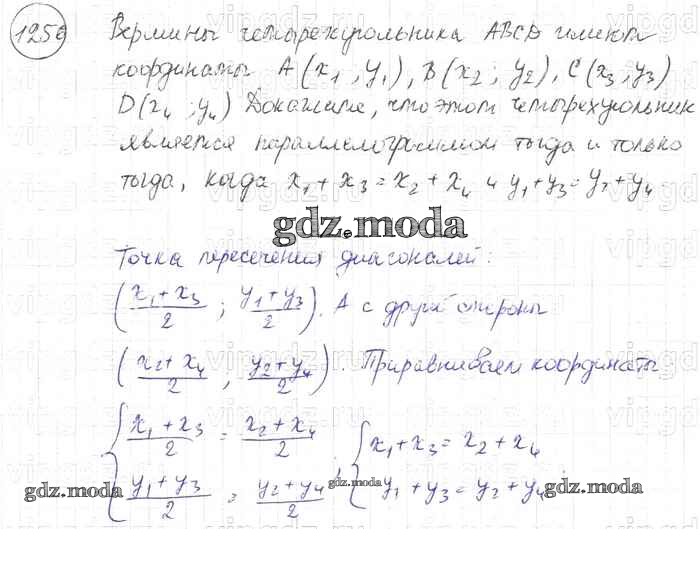 1256 Вершины четырехугольника ABCD имеют
координаты A(x₁; y₁), B(x₂; y₂), C(x₃; y₃)
D(x₄; y₄) Докажите, что этот четырехугольник
является параллелограммом тогда и только
тогда, когда x₁ + x₃ = x₂ + x₄ и y₁ + y₃ = y₂ + y₄
gdz.moda
Точка пересечения диагоналей:
(x₁ + x₃/2 ; y₁ + y₃/2). А с другой стороны
(x₂ + x₄/2 ; y₂ + y₄/2). Приравниваем координаты
{ x₁ + x₃/2 = x₂ + x₄/2 { x₁ + x₃ = x₂ + x₄
y₁ + y₃/2 = y₂ + y₄/2 ; y₁ + y₃ = y₂ + y₄
gdz.moda gdz.moda gdz.moda